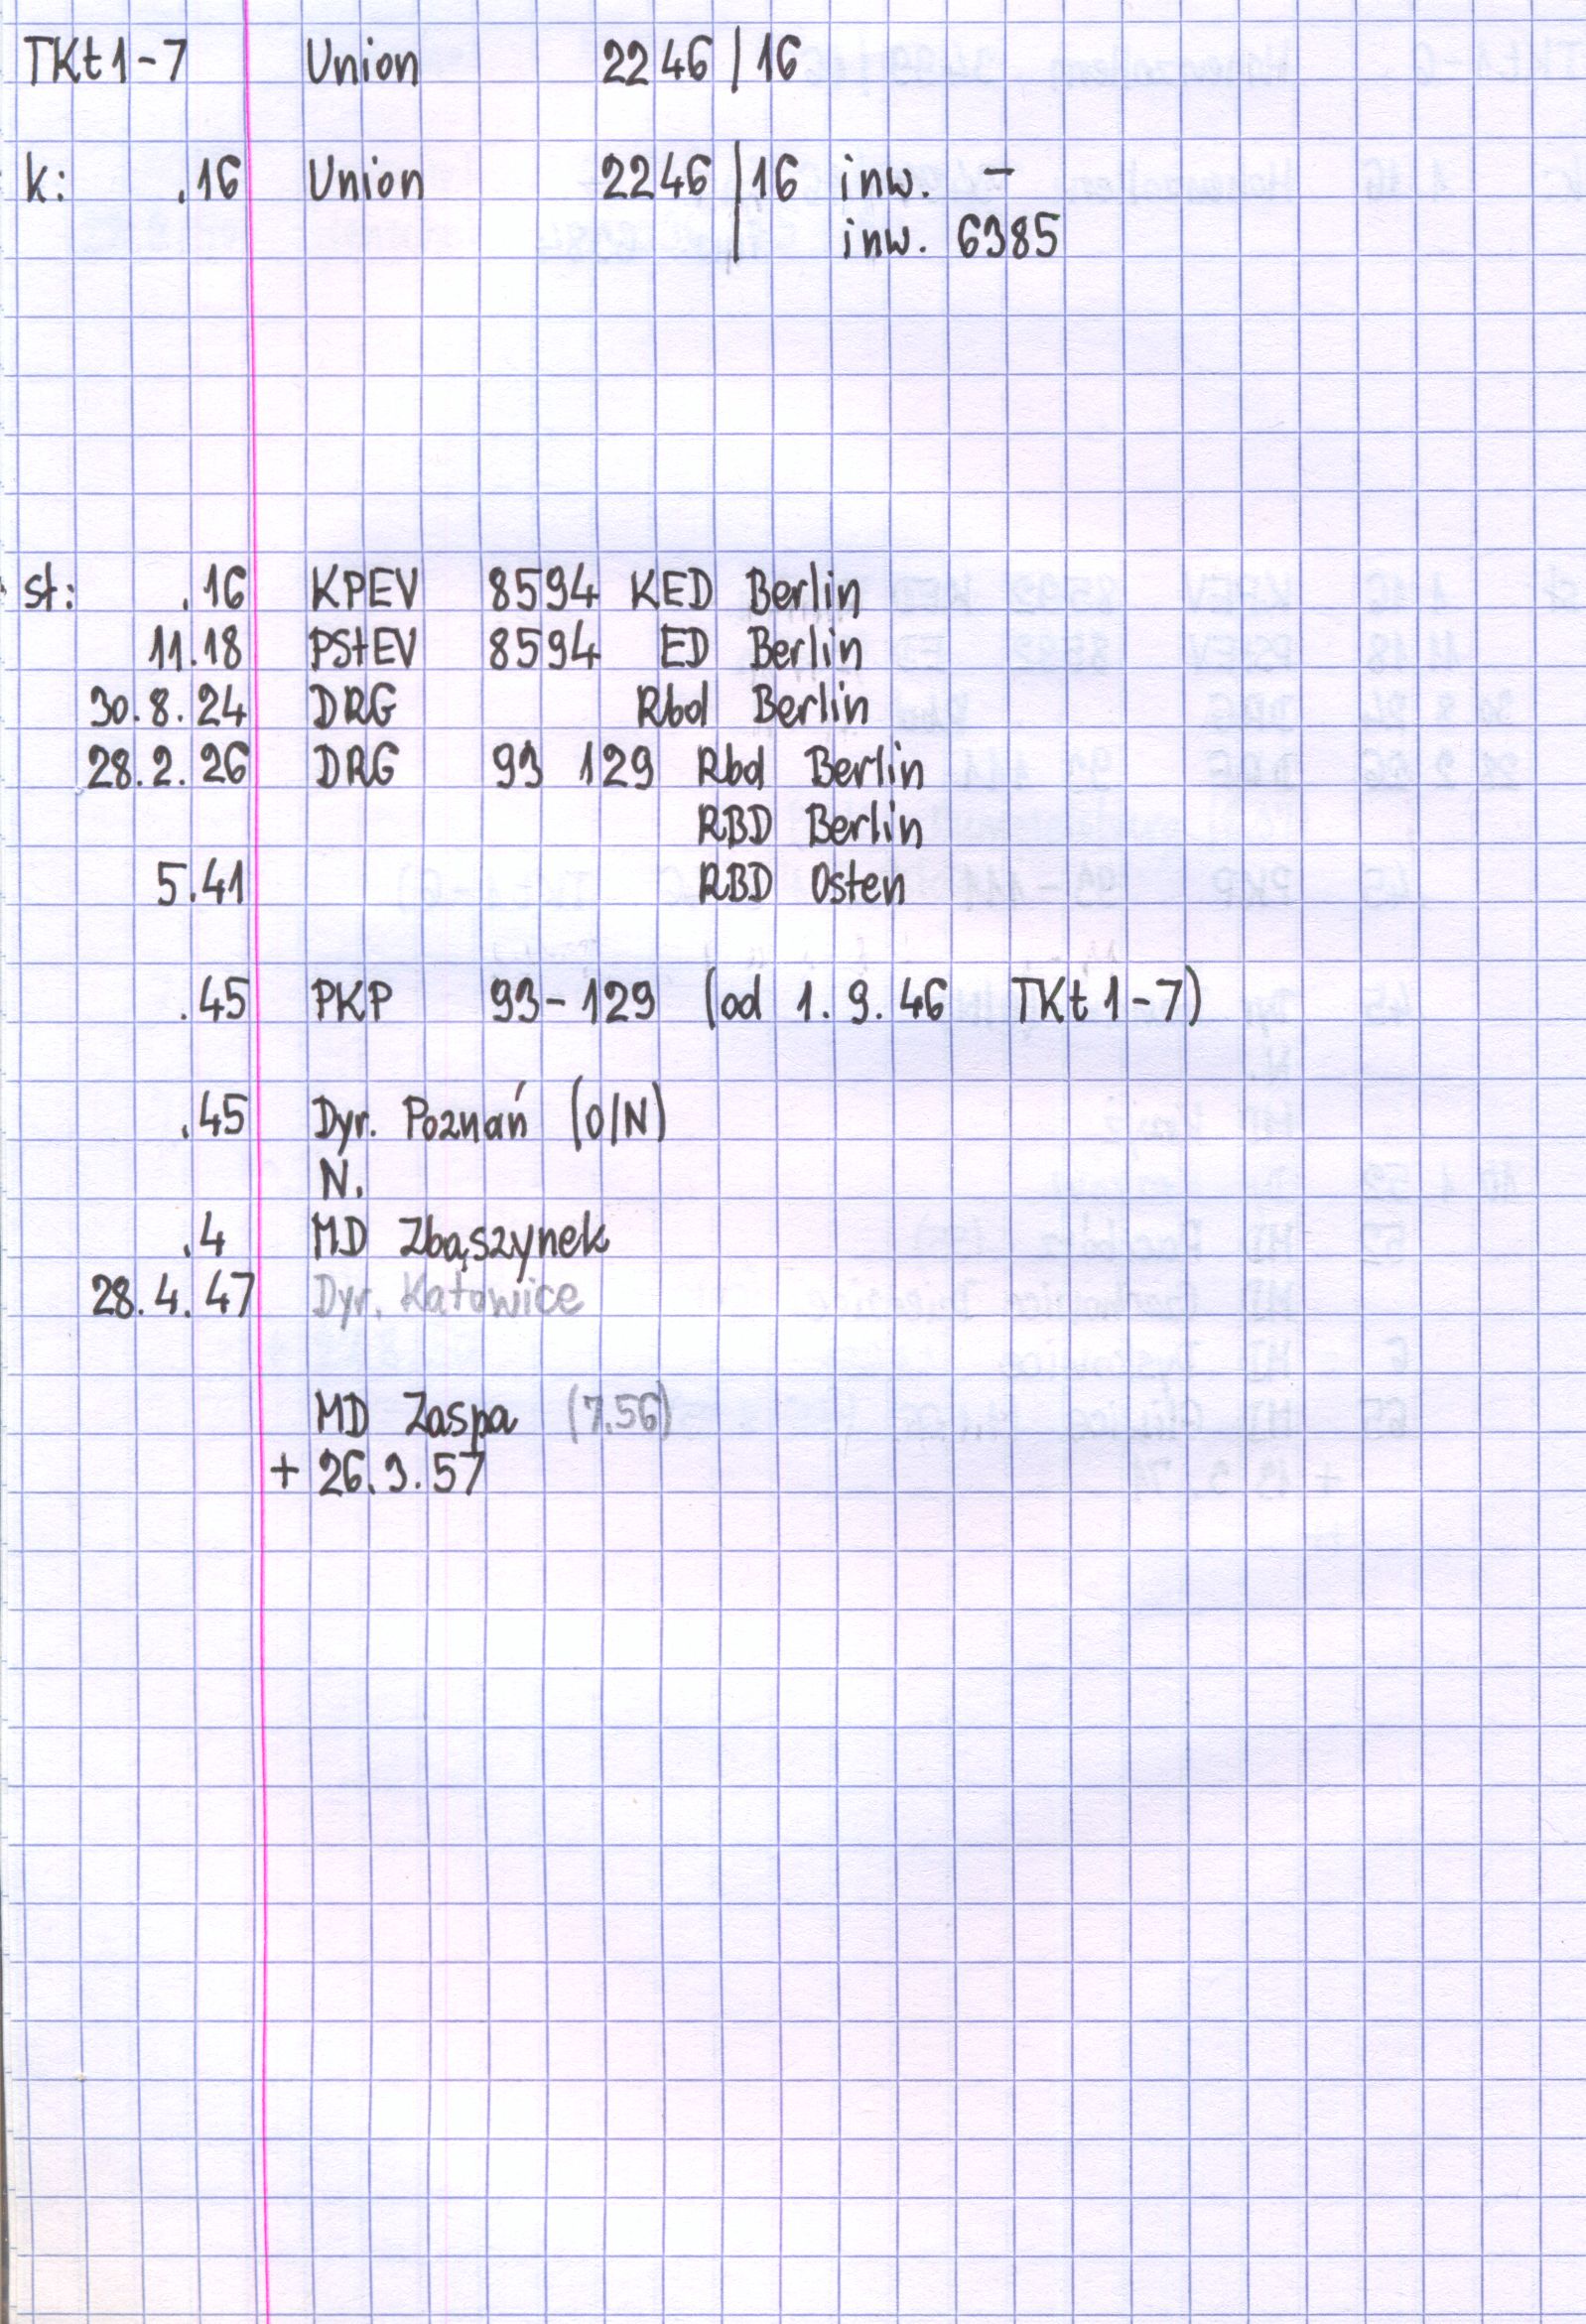 TKt1-7 Union 2246/16
k: .16 Union 2246/16 inw. -
inw. 6385
st: .16 KPEV 8594 KED Berlin
11.18 PStEV 8594 ED Berlin
30.8.24 DRG Rbd Berlin
28.2.26 DRG 93 129 Rbd Berlin
RBD Berlin
5.41 RBD Osten
.45 PKP 93-129 (od 1.9.46 TKt1-7)
.45 Dyr. Poznań (O/N)
N.
.4 MD Zbąszynek
28.4.47 Dyr. Katowice
MD Zaspa (7.56)
+ 26.3.57